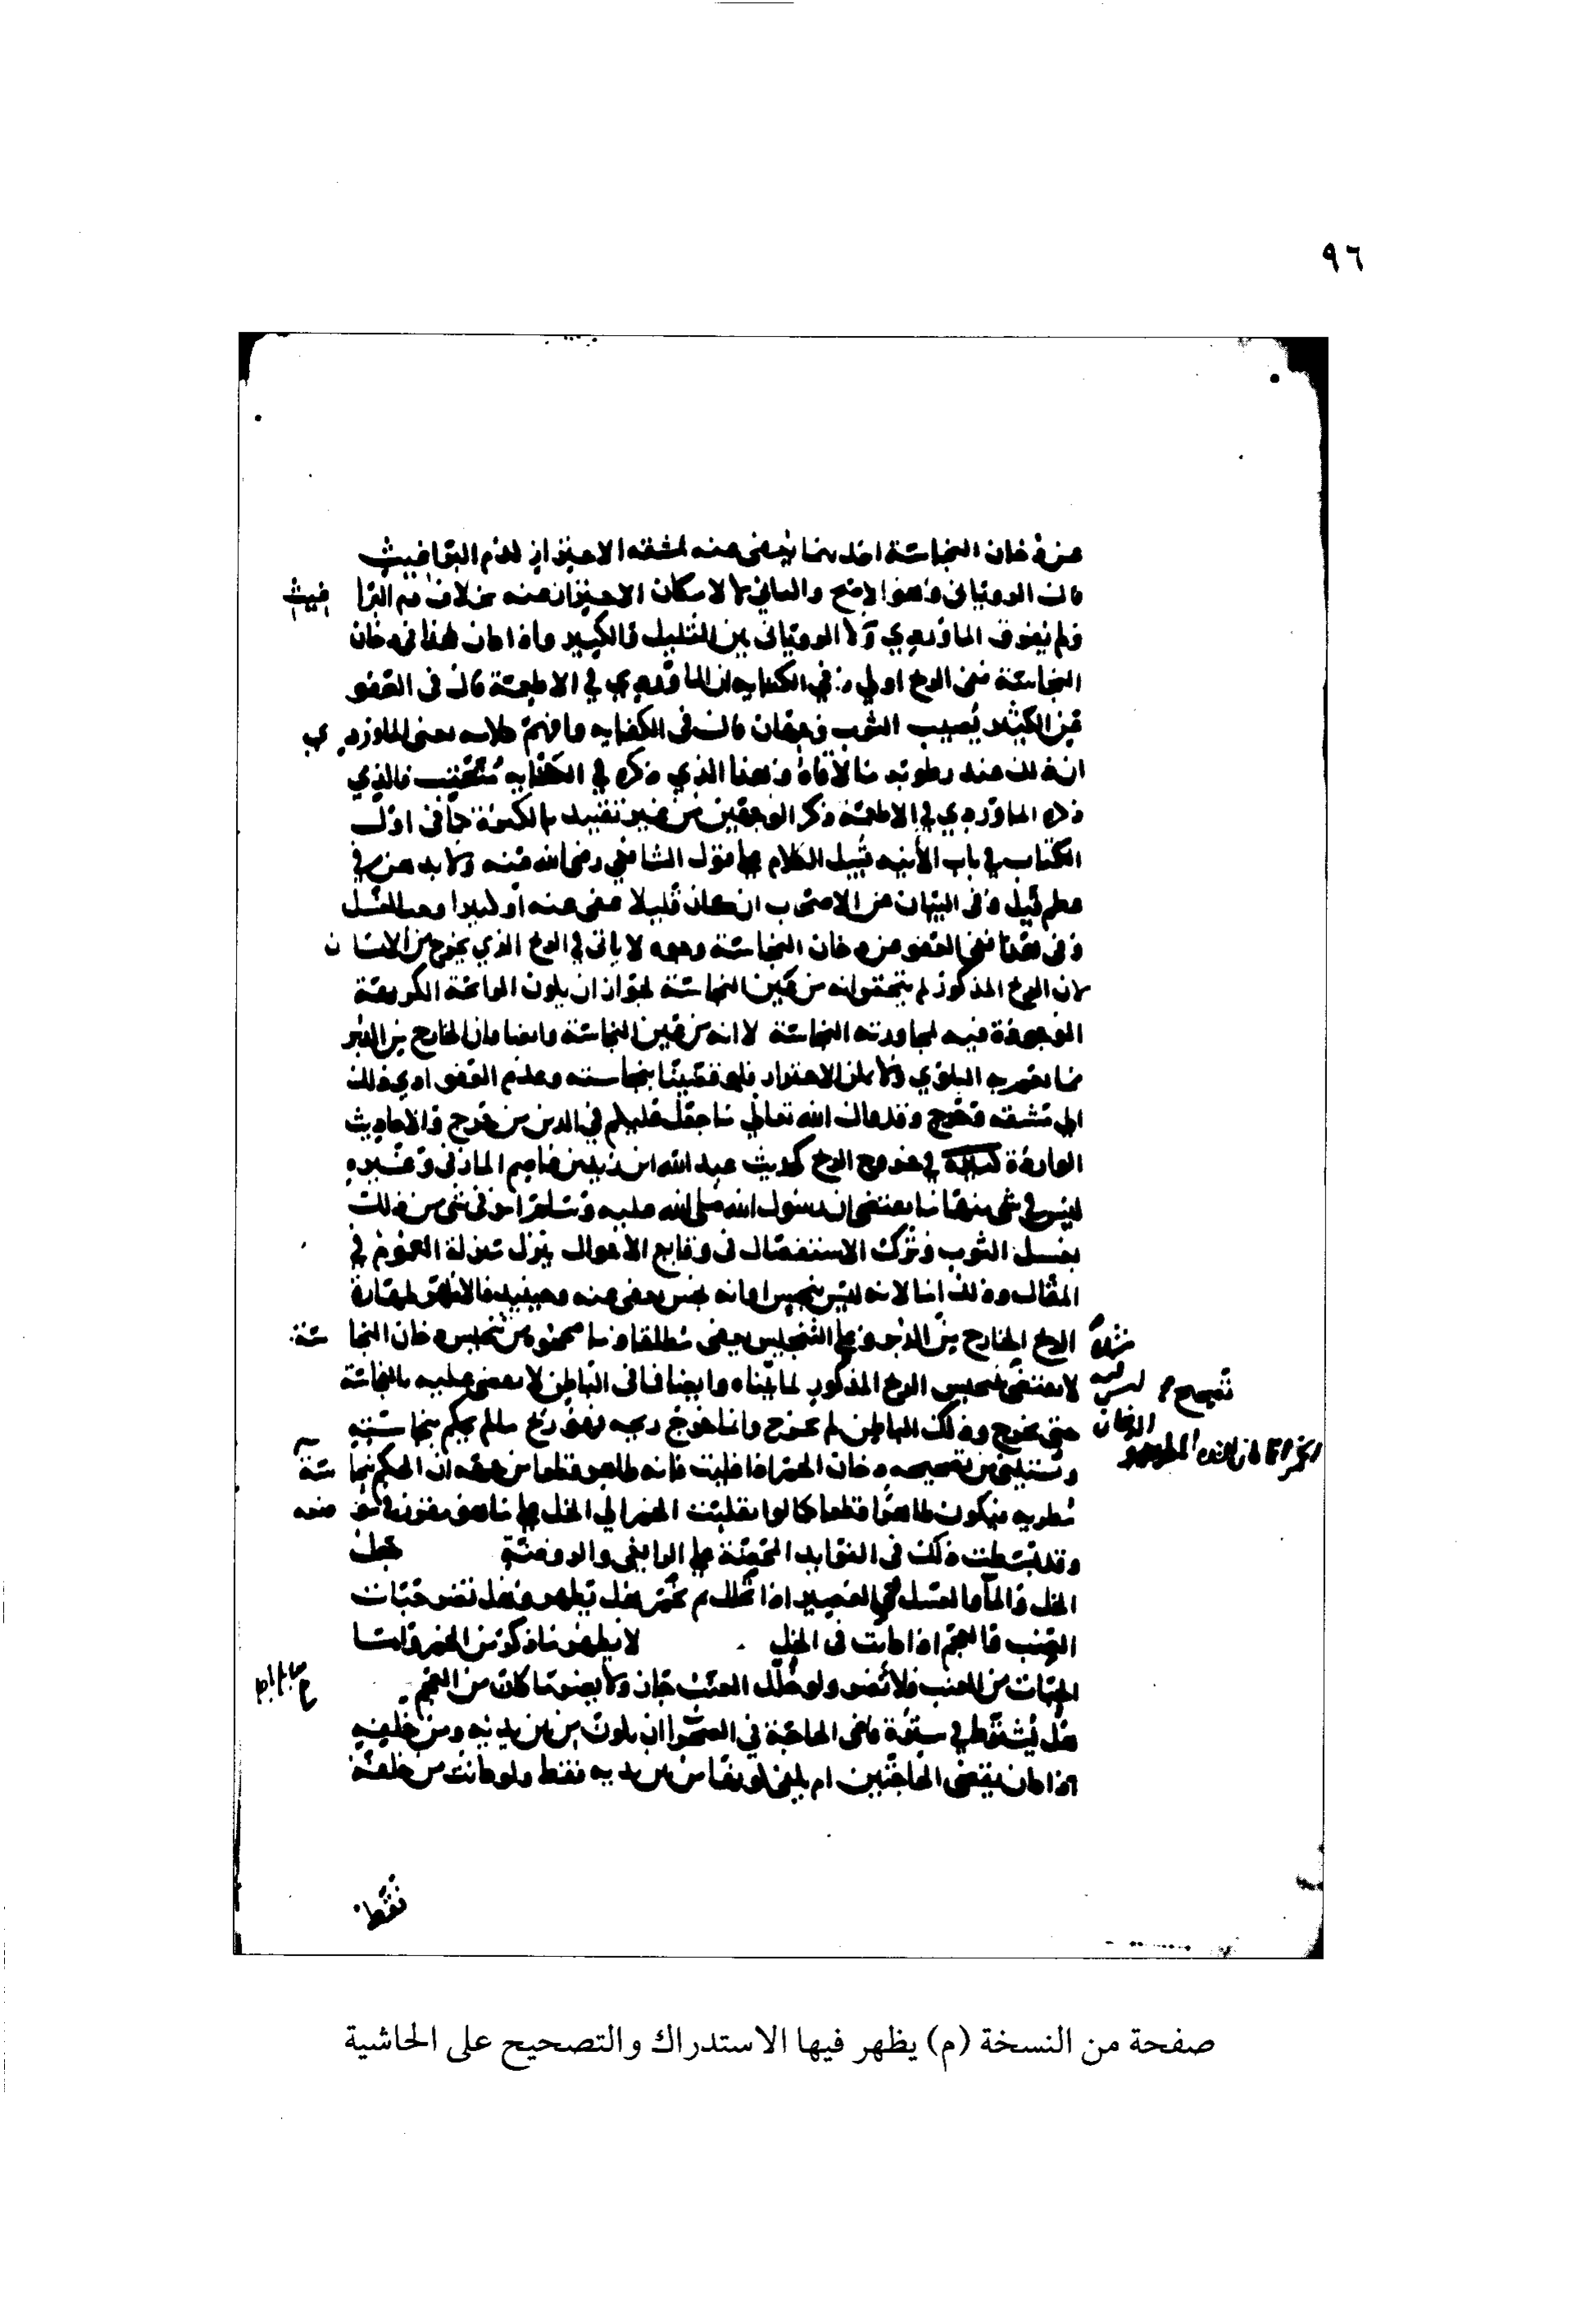 ٩٦
عن دخان النجاسة احد بما يعفى عنه لمشقة الاحتراز لدم البراغيث
قال الروياني وهو الاصح والثاني لا لامكان الاحتراز عنه بخلاف دم البراغيث
ولم يفرق الماوردي ولا الروياني بين القليل والكثير واذا كان هذا في دخان
النجاسة ففي الريح اولى وفي الكفاية ان الماوردي في الاطعمة قال في العفو
عن الكثير يصيب الثوب وجهان قال في الكفاية وافهم كلامه يعني الماوردي
ان ذلك عند رطوبة ما لاقاه وهذا الذي ذكره في الكفاية فالذي
ذكره الماوردي في الاطعمة ذكر الوجهين من غير تقييد بالكثرة في اول
الكتاب في باب الآنية قبيل الكلام على قول الشافعي رضي الله عنه ولا بد هن في
عظم فيل وفي البيان عن الاصحاب ان كان قليلا عفي عنه او كثيرا وجب الغسل
وفي هذا نفي العفو عن دخان النجاسة وجه لا ياتي في الريح الذي يخرج من الانسان
لان الريح المذكور لم يتحقق انه من عين النجاسة لجواز ان يكون الرائحة الكريهة
الموجودة فيه لمجاورته النجاسة لا انه من عين النجاسة وايضا فان الخارج من الدبر
مما تعم به البلوى ولا يمكن الاحتراز فلو قضينا بنجاسته وعدم العفو ادى ذلك
الى مشقة وحرج وقد قال الله تعالى ما جعل عليكم في الدين من حرج والاحاديث
الواردة في خروج الريح كحديث عبد الله ابن زيد بن عاصم المازني وغيره
ليس في شي منها ما يقتضي ان رسول الله صلى الله عليه وسلم امر في شي من ذلك
بغسل الثوب وترك الاستفصال في وقايع الاحوال ينزل منزلة العموم في
المقال وذلك اما لانه ليس بنجس او انه نجس يعفى عنه وحينيذ فالاظهر طهارة
الريح الخارج من الدبر وعلى التنجيس يعفى مطلقا وما صححوه من تنجيس دخان النجاسة مثلا
لا يقتضي تنجيس الريح المذكور لما بيناه وايضا فما في الباطن لا يقضى عليه بالنجاسة
حتى يخرج وذلك الباطن لم يخرج وانما خرج ريحه فهو ريح ما لم يحكم بنجاسته
ويستثنى من تصحيح دخان الخمر اذا غليت فانه طاهر قطعا من جهة ان الحكم بنجاسة
فيكون طاهرا قطعا كما لو انقلبت الخمر الى الخل على ما هو مقرر في موضعه
وقد بسطت ذلك في الفوايد المحضة على الرافعي والروضة
الخل والماء والعسل والعصير اذا تخلل ثم تخمر هل يطهر وهل تضر حبات
العنب والعجم اذا كانت في الخل لا يطهر ما ذكر من الخمر واما
الحبات من العنب فلا تضر ولو خلل العنب جاز ولا يضر ما كان من العجم
هل يشترط في سترة قاضي الحاجة في الصحرا ان يكون من بين يديه ومن خلفه
اذا كان يقضي الحاجتين ام يكفي لو بقا من بين يديه فقط ولو كانت من خلفه
فقط
صفحة من النسخة (م) يظهر فيها الاستدراك والتصحيح على الحاشية